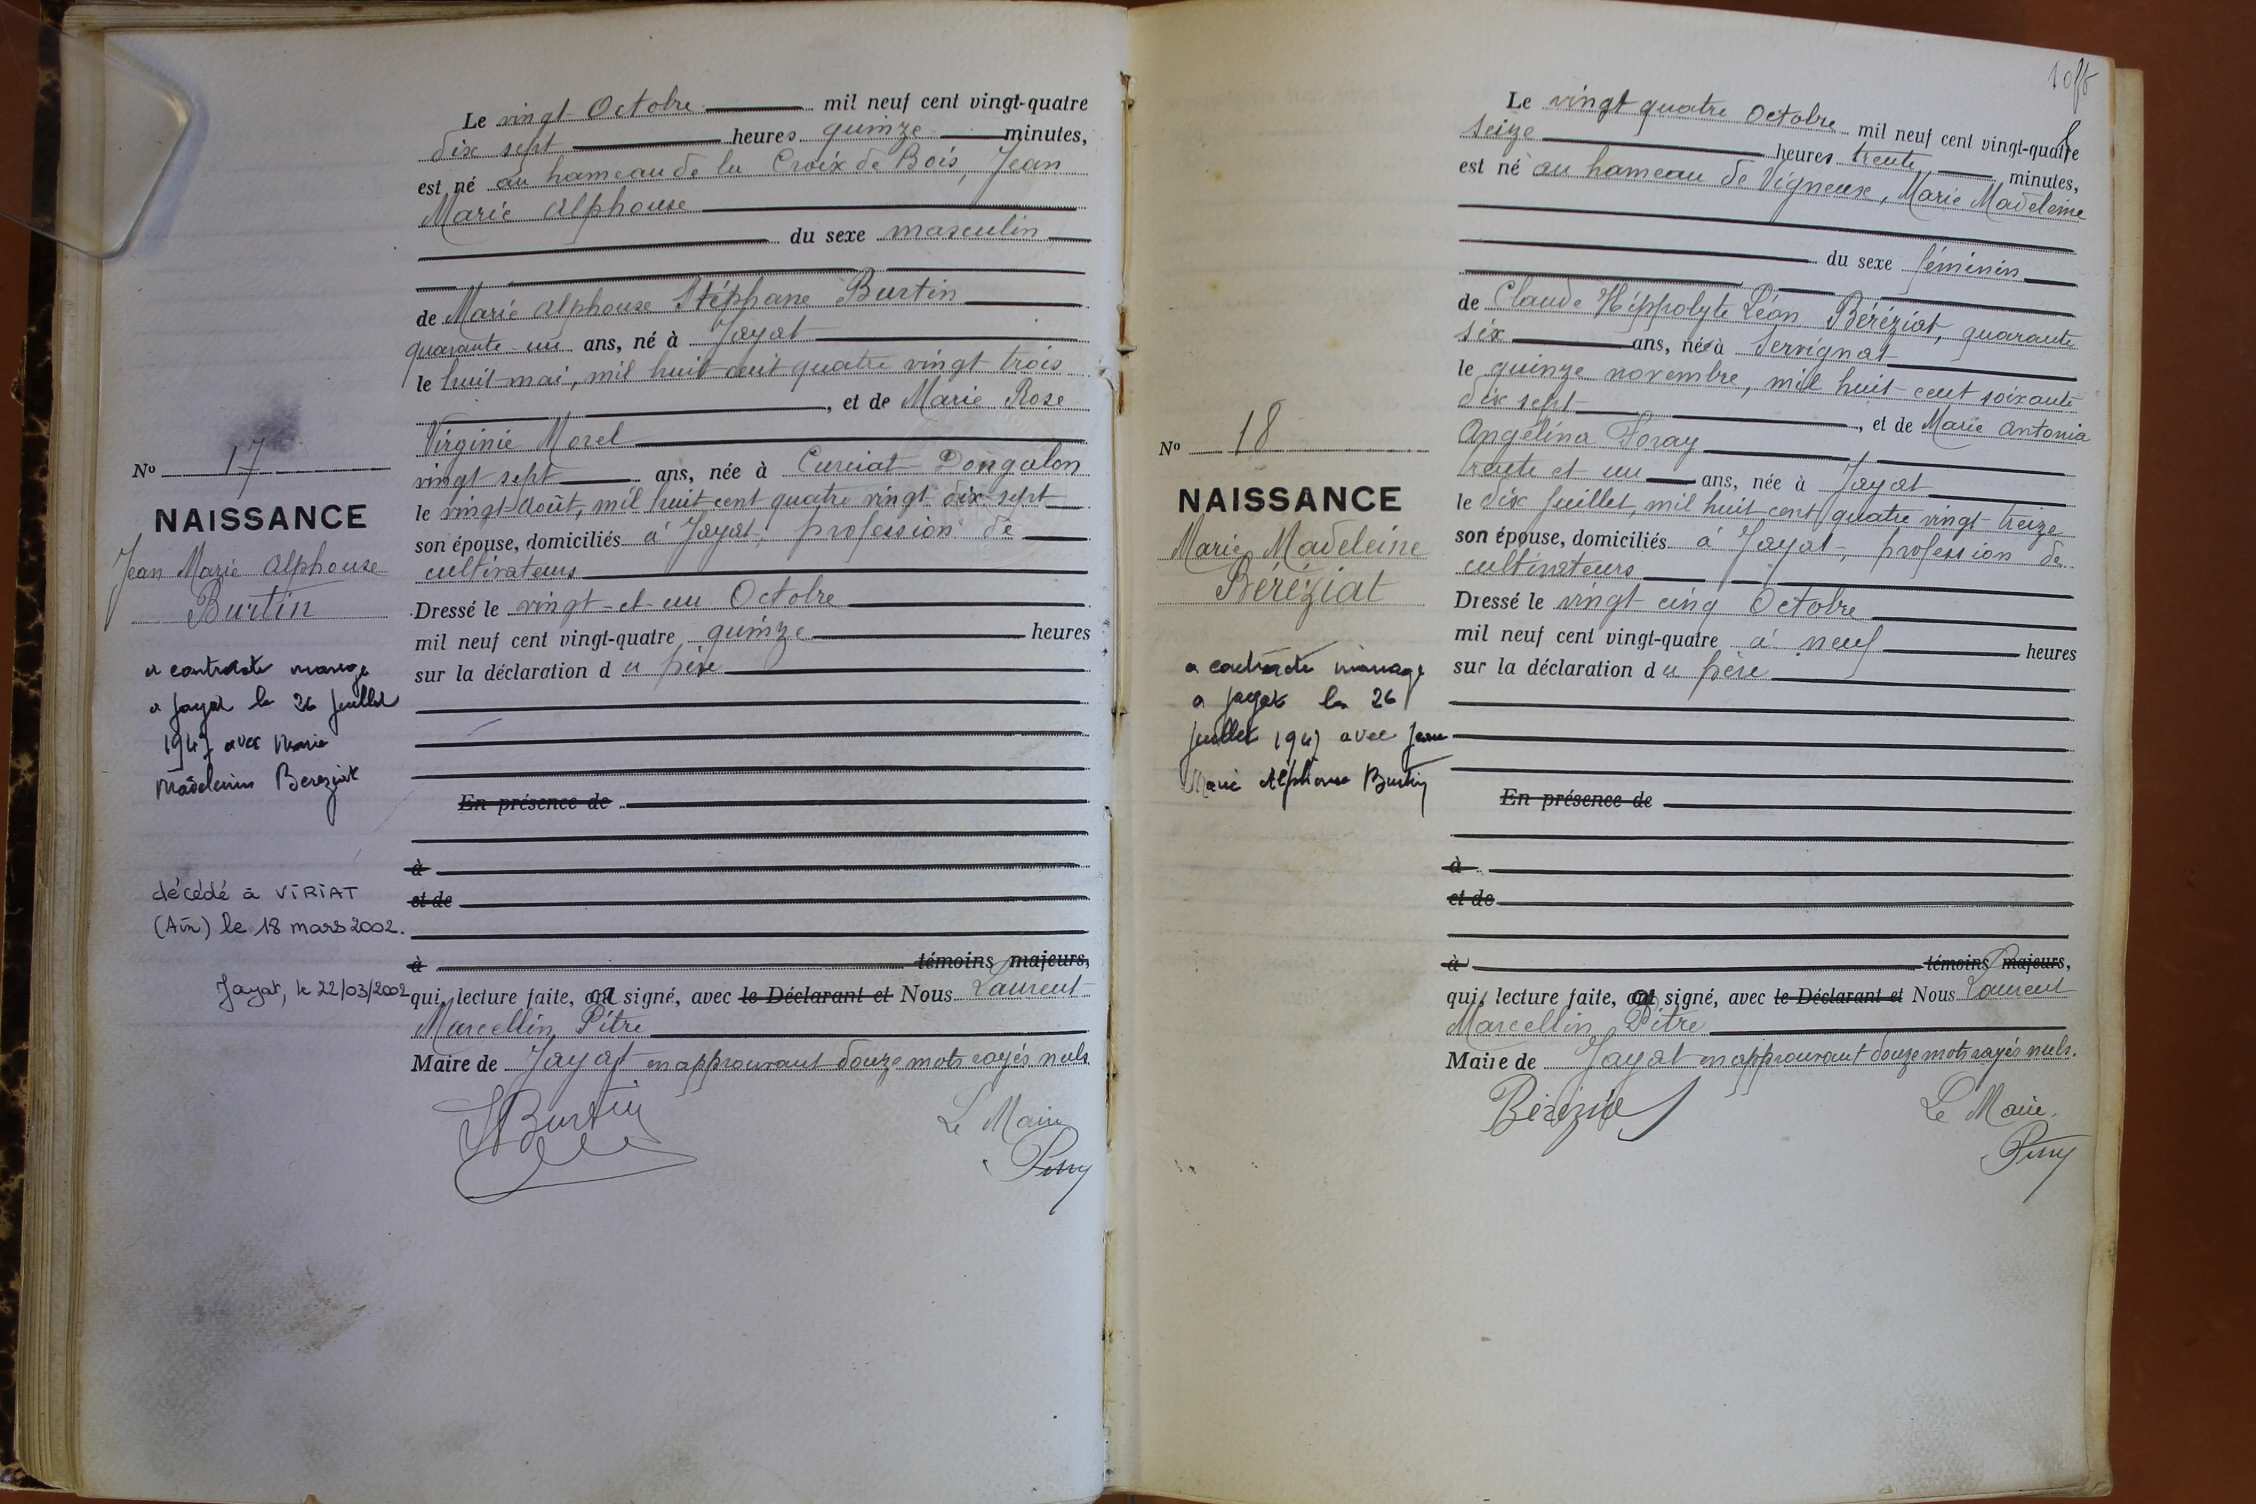 Le vingt Octobre mil neuf cent vingt-quatre
dix sept heures quinze minutes,
est né au hameau de la Croix de Bois, Jean
Marie Alphonse
du sexe masculin
de Marie Alphonse Stéphane Burtin
quarante un ans, né à Jayat
le huit mai, mil huit cent quatre vingt trois
, et de Marie Rose
Virginie Morel
vingt sept ans, née à Curciat Dongalon
le vingt Août, mil huit cent quatre vingt dix sept
son épouse, domiciliés à Jayat, profession de
cultivateurs
Dressé le vingt et un Octobre
mil neuf cent vingt-quatre quinze heures
sur la déclaration du père
En présence de
à
et de
à témoins majeurs,
qui, lecture faite, a signé, avec le Déclarant et Nous Laurent
Marcellin Pitre
Maire de Jayat en approuvant douze mots rayés nuls.
Burtin
Le Maire
N° 17
NAISSANCE
Jean Marie Alphonse
Burtin
a contracté mariage
a Jayat le 26 Juillet
1947 avec Marie
Madeleine Bereziat
décédé à VIRIAT
(Ain) le 18 mars 2002.
Jayat, le 22/03/2002
Le vingt quatre Octobre mil neuf cent vingt-quatre
seize heures trente minutes,
est né au hameau de Vigneux, Marie Madeleine
du sexe féminin
de Claude Hippolyte Léon Beréziat, quarante
six ans, né à Servignat
le quinze novembre, mil huit cent soixante
dix sept , et de Marie Antonia
Angélina Foray
trente et un ans, née à Jayat
le dix Juillet, mil huit cent quatre vingt treize
son épouse, domiciliés à Jayat, profession de
cultivateurs
Dressé le vingt cinq Octobre
mil neuf cent vingt-quatre à neuf heures
sur la déclaration du père
En présence de
à
et de
à témoins majeurs,
qui, lecture faite, a signé, avec le Déclarant et Nous Laurent
Marcellin Pitre
Maire de Jayat en approuvant douze mots rayés nuls.
Béréziat
Le Maire
N° 18
NAISSANCE
Marie Madeleine
Béréziat
a contracté mariage
a Jayat le 26
Juillet 1947 avec Jean
Marie Alphonse Burtin